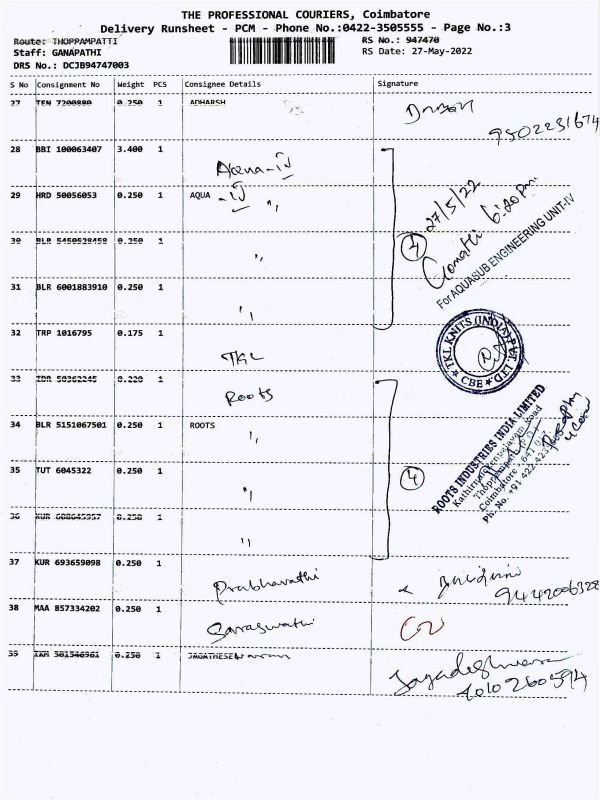 THE PROFESSIONAL COURIERS, Coimbatore
Delivery Runsheet - PCM - Phone No.:0422-3505555 - Page No.:3
Route: THOPPAMPATTI RS No.: 947470
Staff: GANAPATHI RS Date: 27-May-2022
DRS No.: DCJB94747003
S No Consignment No Weight PCS Consignee Details Signature
27 TEN 7200880 0.250 1 ADHARSH
9502231674
28 BBI 100063407 3.400 1 Aqua-IV
29 HRD 50056053 0.250 1 AQUA -IV "
27/5/22
30 BLR 5450528458 0.250 1 "
4
Gomathi 6:20 pm
For AQUASUB ENGINEERING UNIT-IV
31 BLR 6001883910 0.250 1 "
32 TRP 1016795 0.175 1 TKL
TKL KNITS (INDIA) PVT LTD
CBE
33 0.220 1 Roots
34 BLR 5151067501 0.250 1 ROOTS "
ROOTS INDUSTRIES INDIA LIMITED
Road
Coimbatore
Ph. No. +91 422
35 TUT 6045322 0.250 1 "
4
36 KUR 0.250 1 "
37 KUR 693659098 0.250 1 Prabhavathi
9442006328
38 MAA 857334202 0.250 1 Saraswathi
39 0.250 1 JAGATHESEwaran
Jagadeshwara